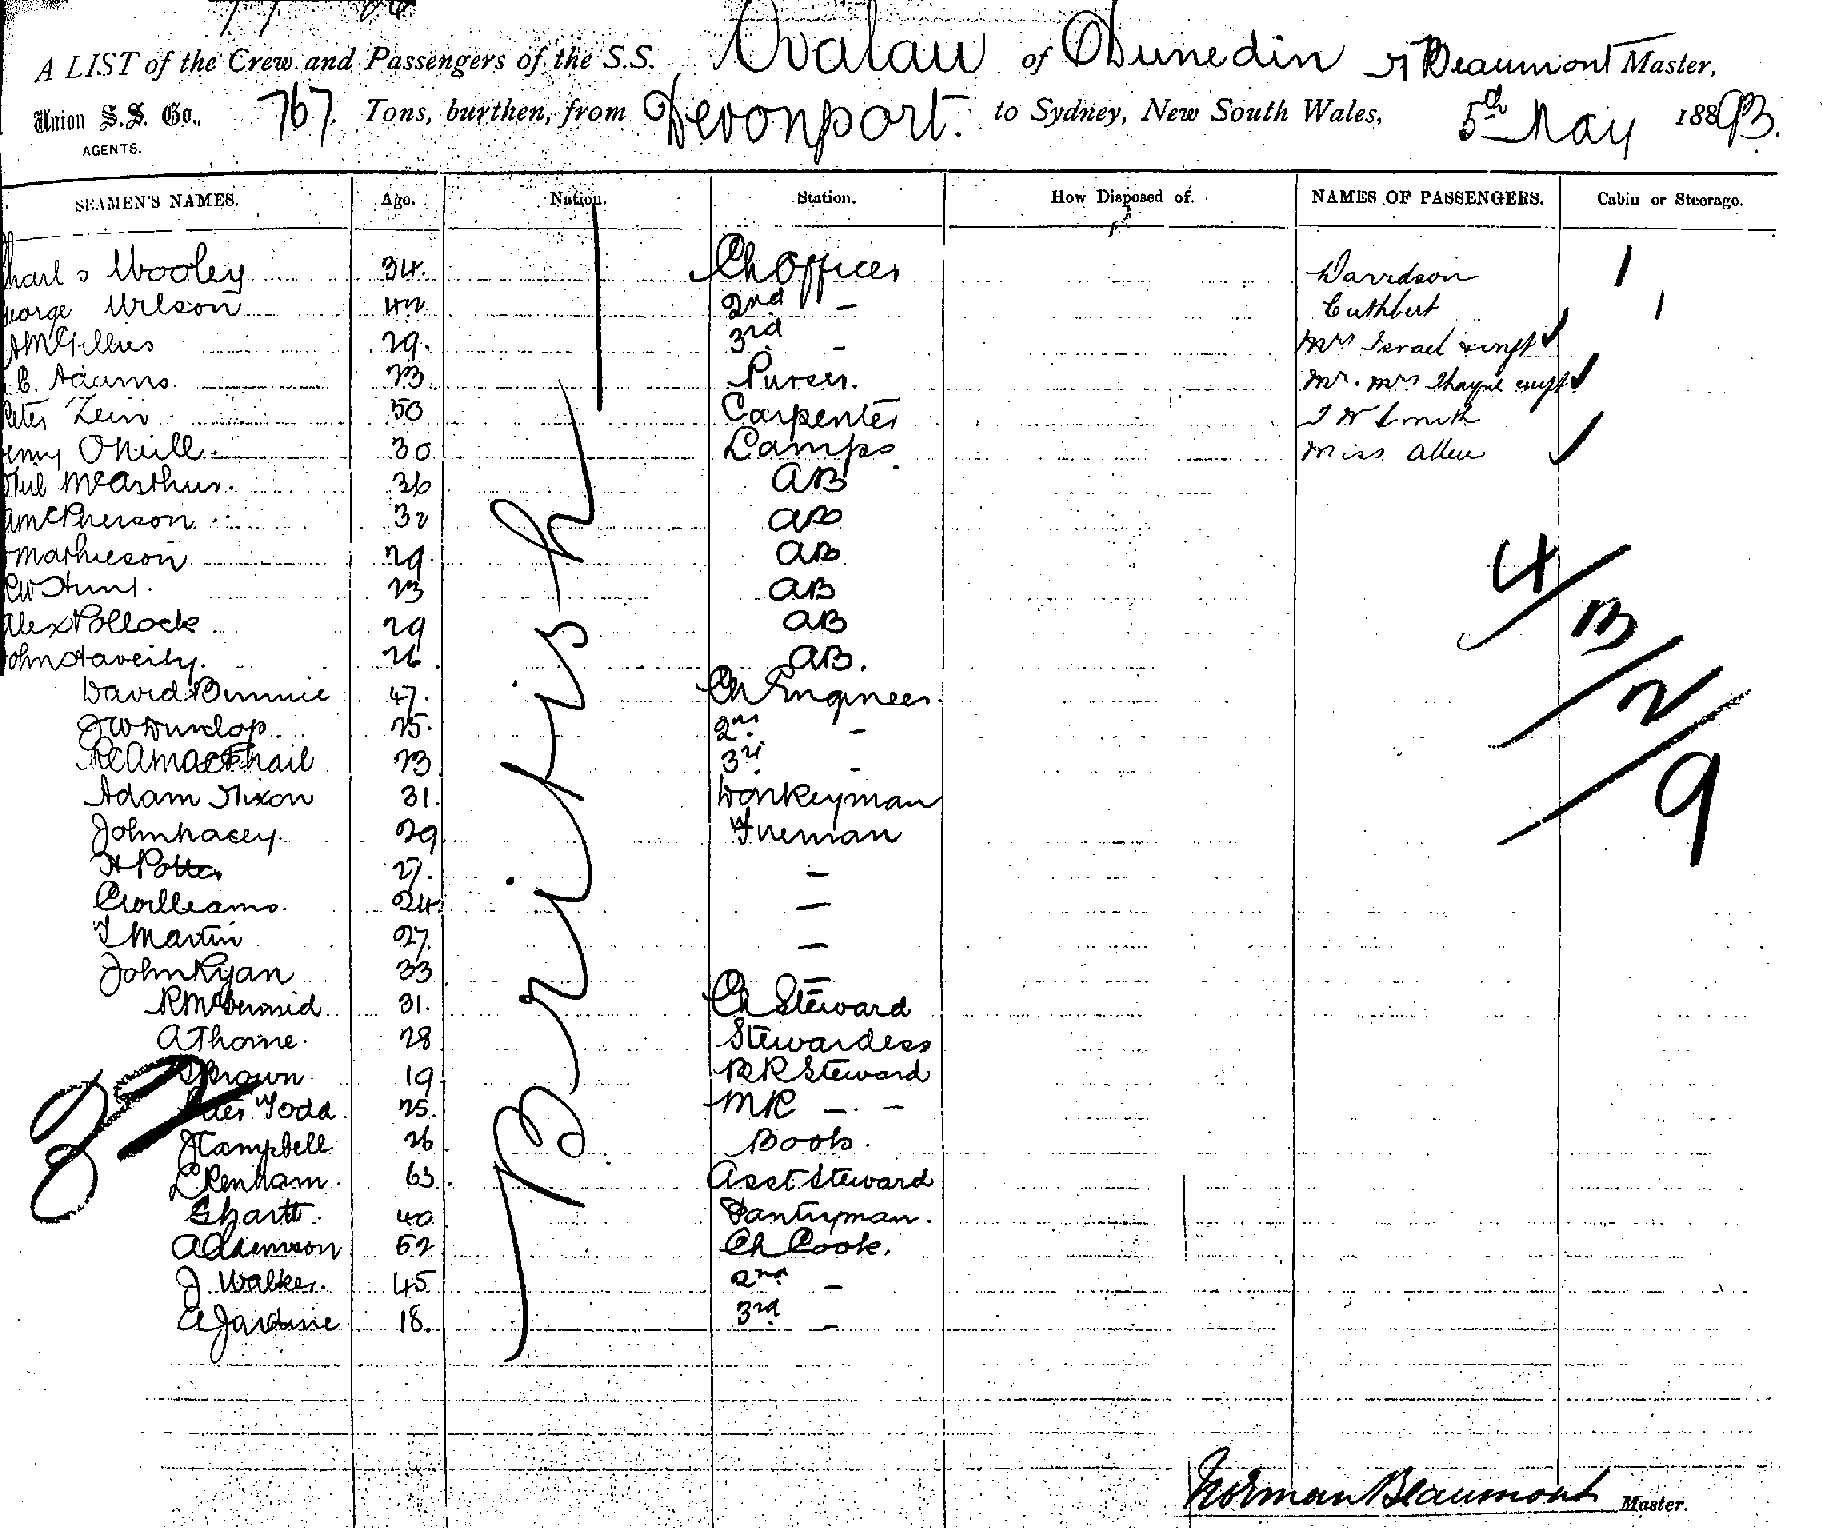 A LIST of the Crew and Passengers of the S.S. Ovalau of Dunedin N Beaumont Master,
Union S.S. Co., AGENTS. 767 Tons, burthen, from Devonport. to Sydney, New South Wales, 5th May 1893.
SEAMEN'S NAMES. Age. Nation. Station. How Disposed of. NAMES OF PASSENGERS. Cabin or Steerage.
Wooley 34. Ch Officer Davidson 1
eorge Wilson 42 2nd – Cuthbert 1
McGillies 29. 3rd – Mrs Israel & inft ✓
E. Adams. 23 Purser. Mr. Mrs inft ✓
eter Zein 50 Carpenter Smith
enry ONeill. 30 Lamps Miss Allen ✓
McArthur. 36 AB
McPherson 32 AB
Mathieson 29. AB
CW Hunt. 23 AB
Alex Pollock 29 AB
ohn Haverty. 26 AB.
David Binnie 47. Ch Engineer.
JW Dunlop 25. 2nd –
MacPhail 23 3rd –
Adam Nixon 31. Donkeyman
John Lacey 29 Fireman
H Potter 27. –
C Williams. 24 –
T Martin 27. –
John Ryan 33 –
R McDermid 31. Ch Steward
A Thorne. 28 Stewardess
Brown 19 BR Steward
Todd 25. MR – –
J Campbell 26 Boots.
L Renham. 63. Asst Steward
40 Pantryman.
A Adamson 52 Ch Cook.
J. Walker. 45 2nd –
A Jardine 18. 3rd –
British
4/3/2/9
Norman Beaumont Master.